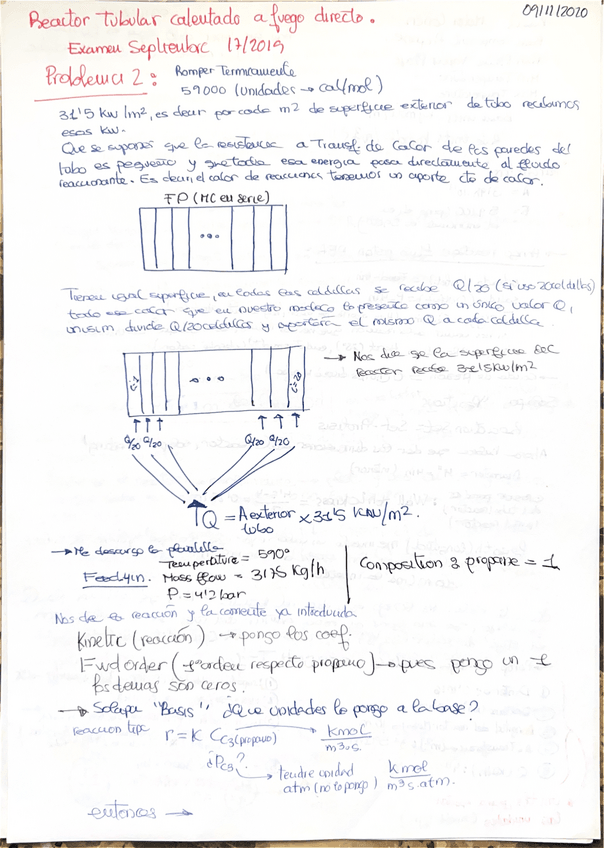 09/11/2020
Reactor tubular calentado a fuego directo.
Examen Septiembre 17/2019
Problema 2: Romper Termicamente
59000 (unidades → cal/mol)
31'5 kw/m², es decir por cada m² de superficie exterior de tubo recibimos
esos kw.
Que se supone que la resistencia a Transf. de Calor de las paredes del
tubo es pequeña y que toda esa energia pasa directamente al fluido
reaccionante. Es decir el calor de reacciones tenemos un aporte cte de calor.
FP (MC en serie)
Tienen igual superficie, en todas las celdillas se recibe Q/20 (si uso 20 celdillas)
todo ese calor que en nuestro modelo lo presento como un único valor Q,
unisim divide Q/20 celdillas y aportará el mismo Q a cada celdilla.
→ Nos dice que la superficie del
reactor recibe 31'5 kw/m²
i=1 i=20
Q/20 Q/20 Q/20 Q/20
Q = A exterior x 31'5 KW/m².
tubo
→ Me descargo la plantilla
Feed 4in. Temperature = 590°
Mass flow = 3175 Kg/h
P = 4'2 bar
Composition 3 propane = 1
Nos dice la reacción y la corriente ya introducida
Kinetic (reacción) → pongo los coef.
Fwd order (1º orden respecto propano) → pues pongo un 1
los demas son ceros.
→ Solapa "Basis", ¿Que unidades le pongo a la base?
reaccion tipo r = K C C3 (propano) → kmol/m³.s.
¿Pc3? → tendre unidad kmol/m³ s. atm.
atm (no lo pongo)
entonces →